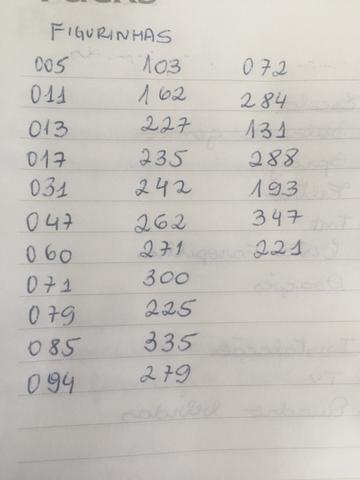 FIGURINHAS
005 103 072
011 162 284
013 227 131
017 235 288
031 242 193
047 262 347
060 271 221
071 300
079 225
085 335
094 279